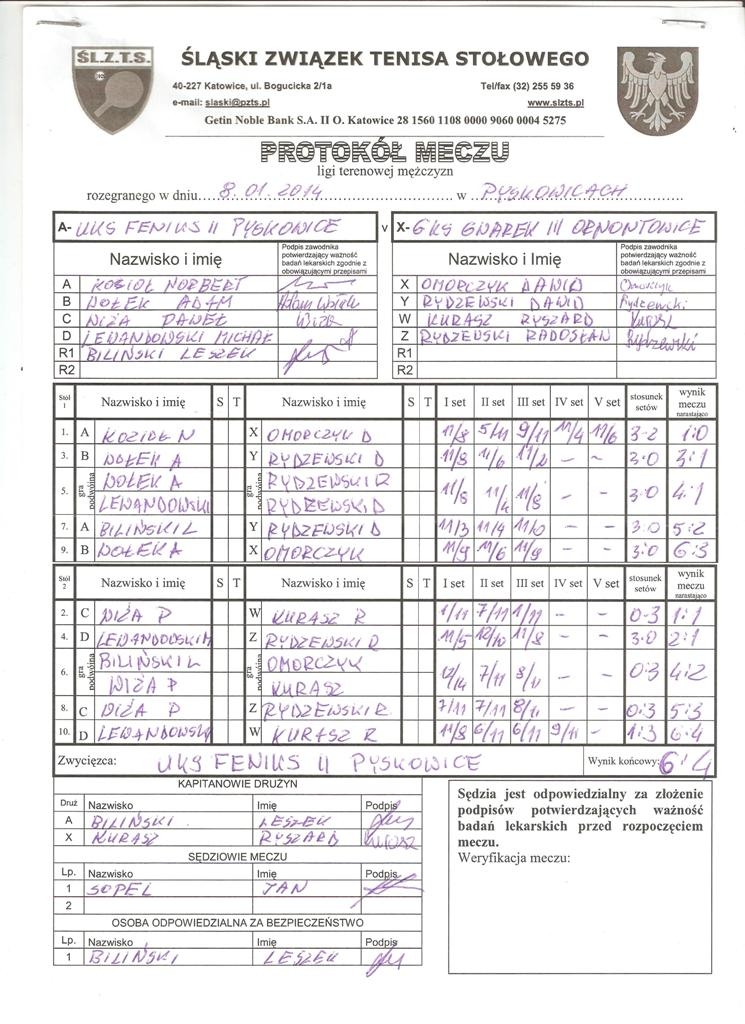 ŚL.Z.T.S.
ŚLĄSKI ZWIĄZEK TENISA STOŁOWEGO
40-227 Katowice, ul. Bogucicka 2/1a Tel/fax (32) 255 59 36
e-mail: slaski@pzts.pl www.slzts.pl
Getin Noble Bank S.A. II O. Katowice 28 1560 1108 0000 9060 0004 5275
PROTOKÓŁ MECZU
ligi terenowej mężczyzn
rozegranego w dniu 8.01.2014 w PYSKOWICACH
A- UKS FENIKS II PYSKOWICE v X- GKS GWAREK III ORNONTOWICE
Nazwisko i imię Podpis zawodnika potwierdzający ważność badań lekarskich zgodnie z obowiązującymi przepisami Nazwisko i Imię Podpis zawodnika potwierdzający ważność badań lekarskich zgodnie z obowiązującymi przepisami
A KOZIOŁ NORBERT X OMORCZYK DAWID Omorczyk
B WOŁEK ADAM Adam Wołek Y RYDZEWSKI DAWID Rydzewski
C WIŻA PAWEŁ Wiża W KURASZ RYSZARD Kurasz
D LEWANDOWSKI MICHAŁ Z RYDZEWSKI RADOSŁAW Rydzewski
R1 BILIŃSKI LESZEK R1
R2 R2
Stół 1 Nazwisko i imię S T Nazwisko i imię S T I set II set III set IV set V set stosunek setów wynik meczu narastająco
1. A KOZIOŁ N X OMORCZYK D 11/8 5/11 9/11 11/4 11/6 3-2 1:0
3. B WOŁEK A Y RYDZEWSKI D 11/9 11/6 11/2 - - 3:0 3:1
5. gra podwójna WOŁEK A gra podwójna RYDZEWSKI R 11/8 11/4 11/8 - - 3:0 4:1
LEWANDOWSKI RYDZEWSKI D
7. A BILIŃSKI L Y RYDZEWSKI D 11/3 11/4 11/0 - - 3:0 5:2
9. B WOŁEK A X OMORCZYK 11/9 11/6 11/9 - - 3:0 6:3
Stół 2 Nazwisko i imię S T Nazwisko i imię S T I set II set III set IV set V set stosunek setów wynik meczu narastająco
2. C WIŻA P W KURASZ R 1/11 7/11 1/11 - - 0-3 1:1
4. D LEWANDOWSKI M Z RYDZEWSKI R 11/5 12/10 11/8 - - 3:0 2:1
6. gra podwójna BILIŃSKI L gra podwójna OMORCZYK 12/14 7/11 8/11 - - 0:3 4:2
WIŻA P KURASZ
8. C WIŻA P Z RYDZEWSKI R 7/11 7/11 8/11 - - 0:3 5:3
10. D LEWANDOWSKI W KURASZ R 11/8 6/11 6/11 9/11 - 1:3 6:4
Zwycięzca: UKS FENIKS II PYSKOWICE Wynik końcowy: 6:4
KAPITANOWIE DRUŻYN
Druż Nazwisko Imię Podpis
A BILIŃSKI LESZEK
X KURASZ RYSZARD Kurasz
SĘDZIOWIE MECZU
Lp. Nazwisko Imię Podpis
1 SOPEL JAN
2
OSOBA ODPOWIEDZIALNA ZA BEZPIECZEŃSTWO
Lp. Nazwisko Imię Podpis
1 BILIŃSKI LESZEK
Sędzia jest odpowiedzialny za złożenie
podpisów potwierdzających ważność
badań lekarskich przed rozpoczęciem
meczu.
Weryfikacja meczu: